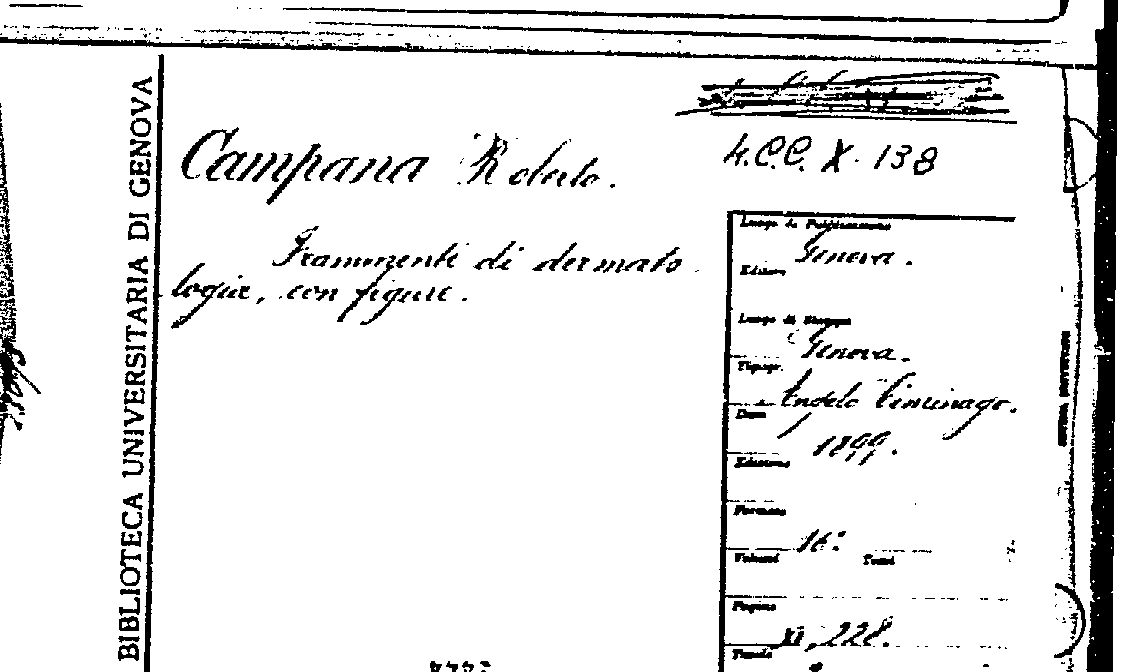 BIBLIOTECA UNIVERSITARIA DI GENOVA
4.C.C. X. 138
Campana Roberto.
Frammenti di dermato
logia, con figure.
Luogo di Pubblicazione
Genova.
Editore
Luogo di Stampa
Genova.
Tipogr.
Angelo Ciminago.
Data
1899.
Edizione
Formato
16°
Volumi Tomi
Pagine
XI, 228.
Tavole